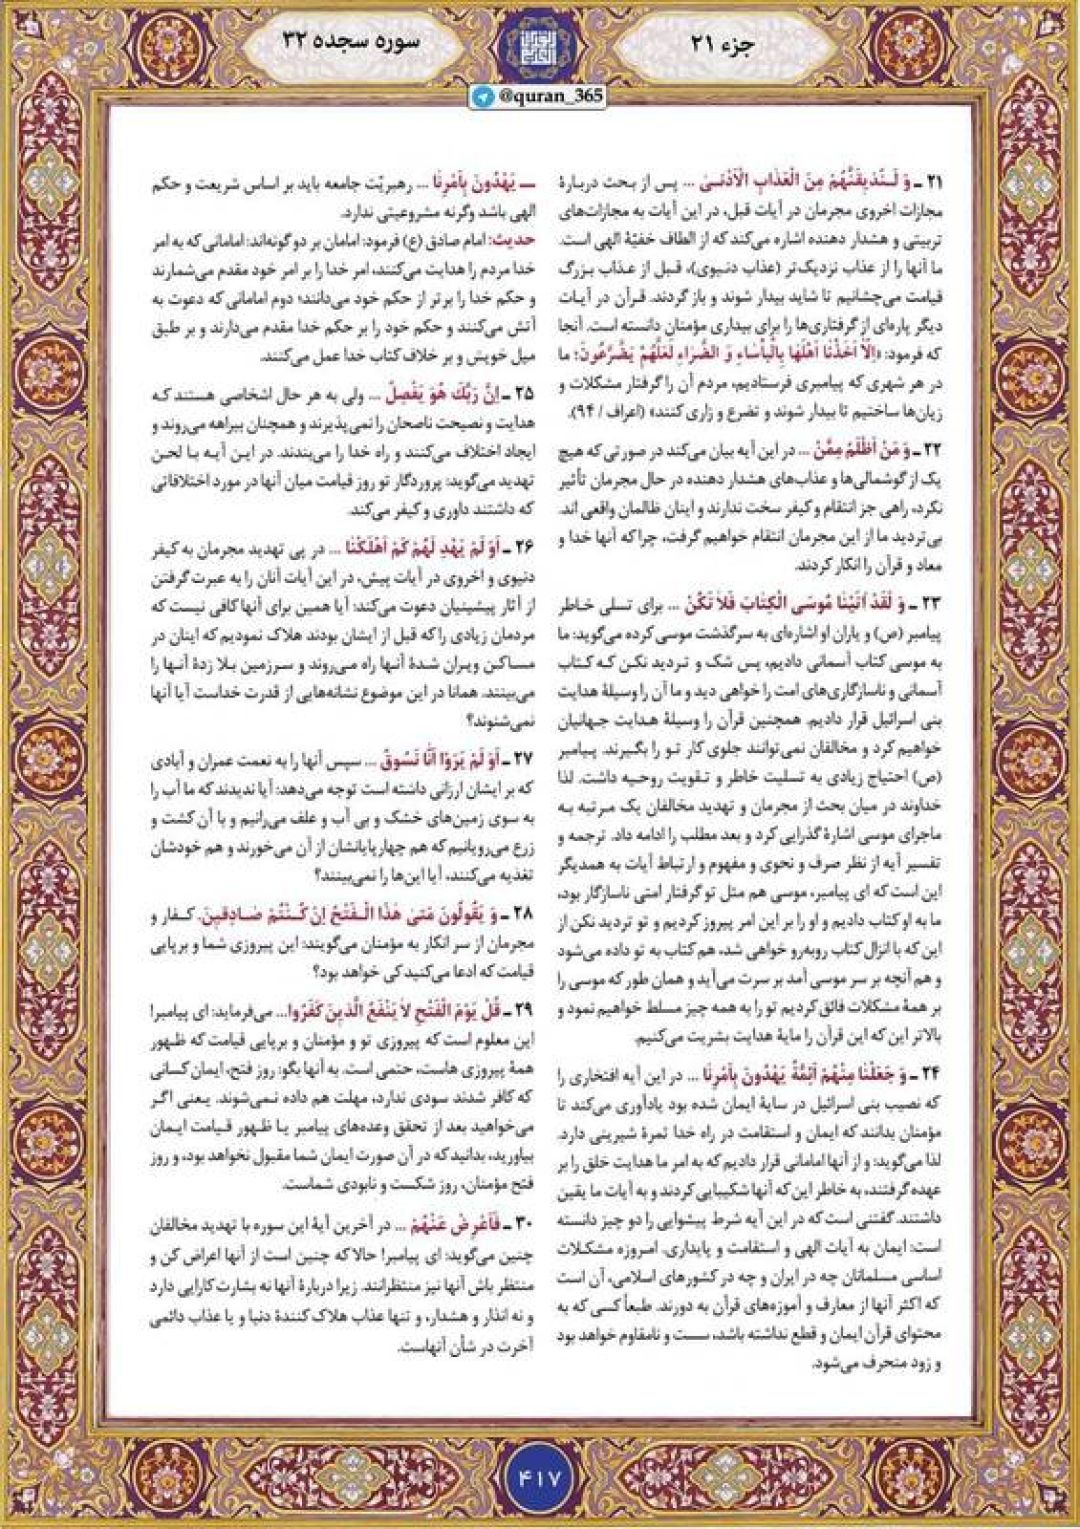 جزء ۲۱
سوره سجده ۳۲
@quran_365
۲۱ ـ وَ لَـنُذیقَنَّهُمْ مِنَ الْعَذابِ الْاَدْنـیٰ ... پس از بحث دربارهٔ
مجازات اخروی مجرمان در آیات قبل، در این آیات به مجازات‌های
تربیتی و هشدار دهنده اشاره می‌کند که از الطاف خفیّهٔ الهی است.
ما آنها را از عذاب نزدیک‌تر (عذاب دنیوی)، قبل از عذاب بزرگ
قیامت می‌چشانیم تا شاید بیدار شوند و بازگردند. قرآن در آیـات
دیگر پاره‌ای از گرفتاری‌ها را برای بیداری مؤمنان دانسته است. آنجا
که فرمود: «اِلّاٰ اَخَذْنٰا اَهْلَهٰا بِالْبَأْسٰاءِ وَ الضَّرّٰاءِ لَعَلَّهُمْ یَضَّرَّعُونَ؛ ما
در هر شهری که پیامبری فرستادیم، مردم آن را گرفتار مشکلات و
زیان‌ها ساختیم تا بیدار شوند و تضرع و زاری کنند» (اعراف / ۹۴).
۲۲ ـ وَ مَنْ اَظْلَمُ مِمَّنْ ... در این آیه بیان می‌کند در صورتی که هیچ
یک از گوشمالی‌ها و عذاب‌های هشدار دهنده در حال مجرمان تأثیر
نکرد، راهی جز انتقام و کیفر سخت ندارند و اینان ظالمان واقعی اند.
بی‌تردید ما از این مجرمان انتقام خواهیم گرفت، چرا که آنها خدا و
معاد و قرآن را انکار کردند.
۲۳ ـ وَ لَقَدْ اٰتَیْنٰا مُوسَی الْکِتٰابَ فَلاٰ تَکُنْ ... برای تسلی خاطر
پیامبر (ص) و یاران او اشاره‌ای به سرگذشت موسی کرده می‌گوید: ما
به موسی کتاب آسمانی دادیم، پس شک و تردید نکـن کـه کـتاب
آسمانی و ناسازگاری‌های امت را خواهی دید و ما آن را وسیلهٔ هدایت
بنی اسرائیل قرار دادیم. همچنین قرآن را وسیلهٔ هدایت جـهانیان
خواهیم کرد و مخالفان نمی‌توانند جلوی کار تو را بگیرند. پیامبر
(ص) احتیاج زیادی به تسلیت خاطر و تـقویت روحـیه داشت. لذا
خداوند در میان بحث از مجرمان و تهدید مخالفان یک مرتبه بـه
ماجرای موسی اشارهٔ گذرایی کرد و بعد مطلب را ادامه داد. ترجمه و
تفسیر آیه از نظر صرف و نحوی و مفهوم و ارتباط آیات به همدیگر
این است که ای پیامبر، موسی هم مثل تو گرفتار امتی ناسازگار بود،
ما به او کتاب دادیم و او را بر این امر پیروز کردیم و تو تردید نکن از
این که با انزال کتاب روبه‌رو خواهی شد، هم کتاب به تو داده می‌شود
و هم آنچه بر سر موسی آمد بر سرت می‌آید و همان طور که موسی را
بر همهٔ مشکلات فائق کردیم تو را به همه چیز مسلط خواهیم نمود و
بالاتر این که این قرآن را مایهٔ هدایت بشریت می‌کنیم.
۲۴ ـ وَ جَعَلْنٰا مِنْهُمْ اَئِمَّةً یَهْدُونَ بِاَمْرِنٰا ... در این آیه افتخاری را
که نصیب بنی اسرائیل در سایهٔ ایمان شده بود یادآوری می‌کند تا
مؤمنان بدانند که ایمان و استقامت در راه خدا ثمرهٔ شیرینی دارد.
لذا می‌گوید: و از آنها امامانی قرار دادیم که به امر ما هدایت خلق را بر
عهده گرفتند، به خاطر این که آنها شکیبایی کردند و به آیات ما یقین
داشتند. گفتنی است که در این آیه شرط پیشوایی را دو چیز دانسته
است: ایمان به آیات الهی و استقامت و پایداری. امروزه مشکـلات
اساسی مسلمانان چه در ایران و چه در کشورهای اسلامی، آن است
که اکثر آنها از معارف و آموزه‌های قرآن به دورند. طبعاً کسی که به
محتوای قرآن ایمان و قطع نداشته باشد، سسـت و نامقاوم خواهد بود
و زود منحرف می‌شود.
ـــ یَهْدُونَ بِاَمْرِنٰا ... رهبریّت جامعه باید بر اساس شریعت و حکم
الهی باشد وگرنه مشروعیتی ندارد.
حدیث: امام صادق (ع) فرمود: امامان بر دو گونه‌اند: امامانی که به امر
خدا مردم را هدایت می‌کنند، امر خدا را بر امر خود مقدم می‌شمارند
و حکم خدا را برتر از حکم خود می‌دانند؛ دوم امامانی که دعوت به
آتش می‌کنند و حکم خود را بر حکم خدا مقدم می‌دارند و بر طبق
میل خویش و بر خلاف کتاب خدا عمل می‌کنند.
۲۵ ـ اِنَّ رَبَّکَ هُوَ یَفْصِلُ ... ولی به هر حال اشخاصی هستند کـه
هدایت و نصیحت ناصحان را نمی‌پذیرند و همچنان بیراهه می‌روند و
ایجاد اختلاف می‌کنند و راه خدا را می‌بندند. در این آیـه بـا لحـن
تهدید می‌گوید: پروردگار تو روز قیامت میان آنها در مورد اختلافاتی
که داشتند داوری و کیفر می‌کند.
۲۶ ـ اَوَ لَمْ یَهْدِ لَهُمْ کَمْ اَهْلَکْنٰا ... در پی تهدید مجرمان به کیفر
دنیوی و اخروی در آیات پیش، در این آیات آنان را به عبرت گرفتن
از آثار پیشینیان دعوت می‌کند: آیا همین برای آنها کافی نیست که
مردمان زیادی را که قبل از ایشان بودند هلاک نمودیم که اینان در
مسـاکـن ویـران شـدهٔ آنـها راه مـی‌روند و سـرزمین بـلا زدهٔ آنـها را
می‌بینند. همانا در این موضوع نشانه‌هایی از قدرت خداست آیا آنها
نمی‌شنوند؟
۲۷ ـ اَوَ لَمْ یَرَوْا اَنّٰا نَسُوقُ ... سپس آنها را به نعمت عمران و آبادی
که بر ایشان ارزانی داشته است توجه می‌دهد: آیا ندیدند که ما آب را
به سوی زمین‌های خشک و بی آب و علف می‌رانیم و با آن کشت و
زرع می‌رویانیم که هم چهارپایانشان از آن می‌خورند و هم خودشان
تغذیه می‌کنند، آیا این‌ها را نمی‌بینند؟
۲۸ ـ وَ یَقُولُونَ مَتیٰ هٰذَا الْـفَتْحُ اِنْ کُـنْتُمْ صٰـادِقینَ. کـفار و
مجرمان از سر انکار به مؤمنان می‌گویند: این پیروزی شما و برپایی
قیامت که ادعا می‌کنید کی خواهد بود؟
۲۹ ـ قُلْ یَوْمَ الْفَتْحِ لاٰ یَنْفَعُ الَّذینَ کَفَرُوا... می‌فرماید: ای پیامبر!
این معلوم است که پیروزی تو و مؤمنان و برپایی قیامت که ظـهور
همهٔ پیروزی هاست، حتمی است. به آنها بگو: روز فتح، ایمان کسانی
که کافر شدند سودی ندارد، مهلت هم داده نـمی‌شوند. یـعنی اگـر
می‌خواهید بعد از تحقق وعده‌های پیامبر یـا ظـهور قـیامت ایـمان
بیاورید، بدانید که در آن صورت ایمان شما مقبول نخواهد بود، و روز
فتح مؤمنان، روز شکست و نابودی شماست.
۳۰ ـ فَاَعْرِضْ عَنْهُمْ ... در آخرین آیهٔ این سوره با تهدید مخالفان
چنین می‌گوید: ای پیامبر! حالا که چنین است از آنها اعراض کن و
منتظر باش آنها نیز منتظرانند. زیرا دربارهٔ آنها نه بشارت کارایی دارد
و نه انذار و هشدار، و تنها عذاب هلاک کنندهٔ دنیا و یا عذاب دائمی
آخرت در شأن آنهاست.
۴۱۷